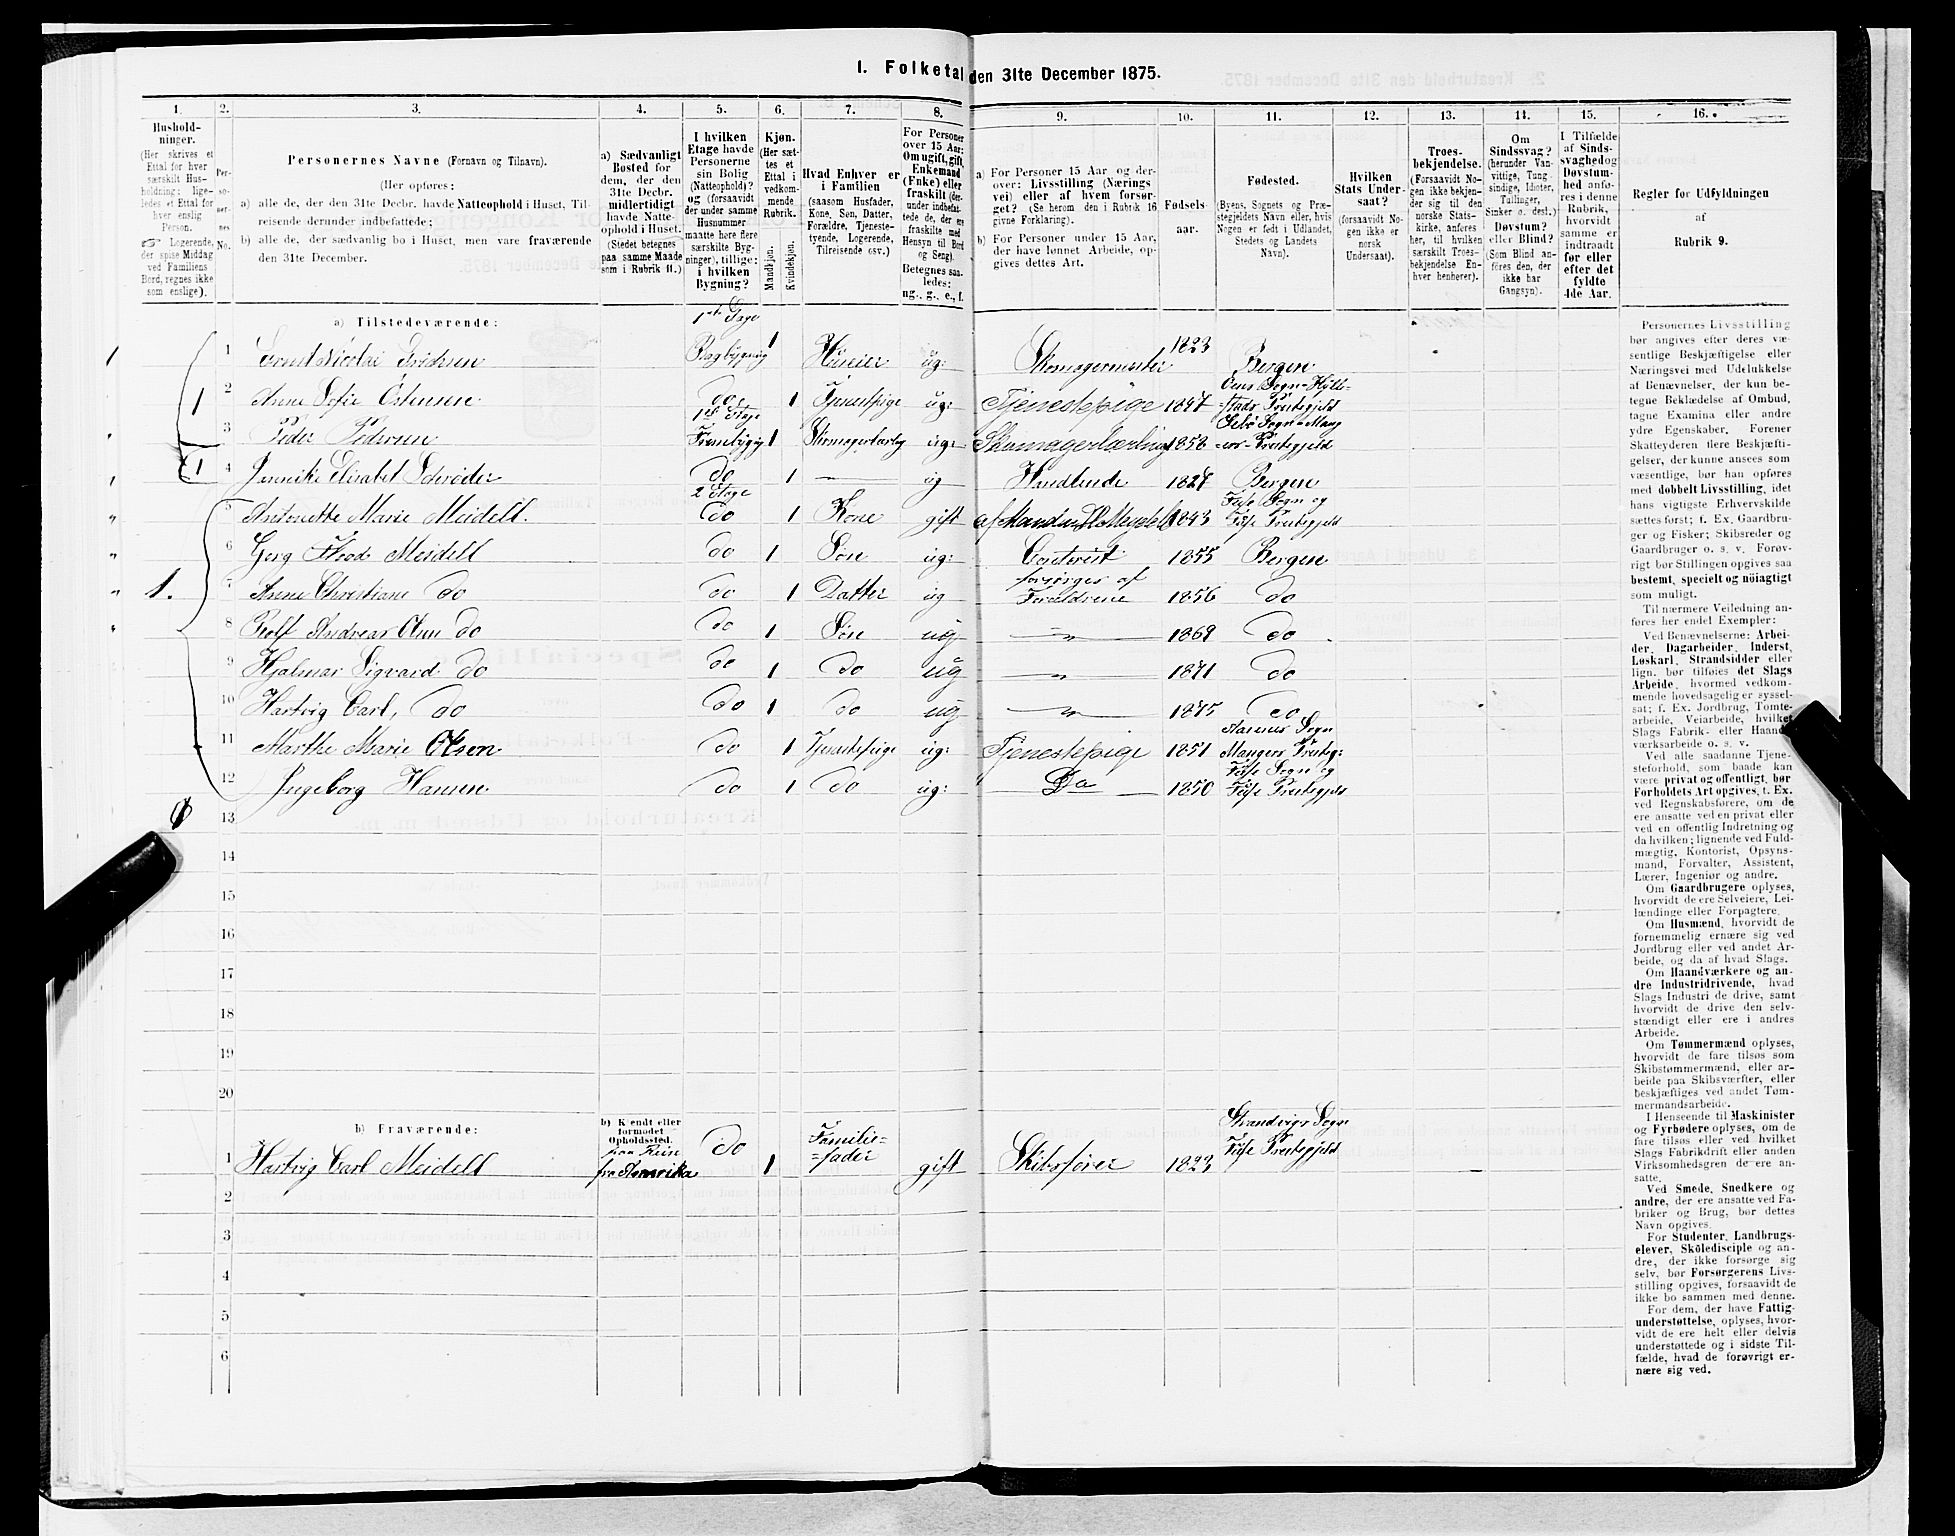 1. Folketal den 31te December 1875.
1. 2. 3. 4. 5. 6. 7. 8. 9. 10. 11. 12. 13. 14. 15. 16.
Hushold-
ninger.
(Her skrives et
Ettal for hver
særskilt Hus-
holdning; lige-
ledes et Ettal for
hver enslig
Person.
☞ Logerende,
der spise Middag
ved Familiens
Bord, regnes ikke
som enslige).
Per-
so-
ner-
nes
No.
Personernes Navne (Fornavn og Tilnavn).
(Her opføres:
a) alle de, der den 31te Decbr. havde Natteophold i Huset, Til-
reisende derunder indbefattede;
b) alle de, der sædvanlig bo i Huset, men vare fraværende
den 31te December.
a) Sædvanligt
Bosted for
dem, der den
31te Decbr.
midlertidigt
havde Natte-
ophold i Huset.
(Stedet betegnes
paa samme Maade
som i Rubrik 11.)
I hvilken
Etage havde
Personerne
sin Bolig
(Natteophold)?
og (forsaavidt
der under samme
Husnummer
maatte høre flere
særskilte Byg-
ninger), tillige:
i hvilken
Bygning?
Kjøn.
(Her sæt-
tes et
Ettal i
vedkom-
mende
Rubrik.
Mandkjøn.
Kvindekjøn.
Hvad Enhver er
i Familien
(saasom Husfader,
Kone, Søn, Datter,
Forældre, Tjeneste-
tyende, Logerende,
Tilreisende osv.)
For Personer
over 15 Aar:
Om ugift, gift,
Enkemand
(Enke) eller
fraskilt (der-
under indbefat-
tede de, der ere
fraskilte med
Hensyn til Bord
og Seng).
Betegnes saa-
ledes:
ug., g., e., f.
a) For Personer 15 Aar og der-
over: Livsstilling (Nærings
vei) eller af hvem forsør-
get? (Se herom den i Rubrik 16
givne Forklaring).
b) For Personer under 15 Aar,
der have lønnet Arbeide, op-
gives dettes Art.
Fødsels-
aar.
Fødested.
(Byens, Sognets og Præ-
stegjeldets Navn eller, hvis
Nogen er født i Udlandet,
Stedets og Landets
Navn).
Hvilken
Stats Under-
saat?
(forsaavidt No-
gen ikke er
norsk
Undersaat).
Troes-
bekjendelse.
(Forsaavidt No-
gen ikke bekjen-
der sig til den
norske Stats-
kirke, anføres
her, til hvilken
særskilt Troes-
bekjendelse En-
hver henhører).
Om
Sindssvag?
(herunder Van-
vittige, Tung-
sindige, Idioter,
Tullinger,
Sinker o. desl.)
Døvstum?
eller Blind?
(Som Blind an-
føres den, der
ikke har
Gangsyn).
I Tilfælde
af Sinds-
svaghed og
Døvstum-
hed anfø-
res i denne
Rubrik,
hvorvidt
samme er
indtraadt
før eller
efter det
fyldte
4de Aar.
Regler for Udfyldningen
af
Rubrik 9.
a) Tilstedeværende:
1 Nicolai 1ste Etage Bagbygning 1 Huseier ug: Skomagermester 1823 Bergen
2 Anne Sofie Ostensen do 1 Tjenestpige ug: Tjenestepige 1847 Sogn-Hylle-
stads Prestegjeld
3 Peder Pedersen 1ste Etage 1 ug: Skomagerlærling 1858 Præstegjeld
4 Elisabet Schrøder do 1 ug Handlende 1827 Bergen
5 Antonette Marie Meidell. 2 Etage do 1 Kone gift 1843 Fuse Sogn og
Fuse Prestegjeld
6 Meidell do 1 Søn ug: Contorist 1855 Bergen
7 Anne Christiane do do 1 Datter ug forsørges af
Forældrene 1856 do
8 Rolf Andreas do do 1 Søn ug — " — 1869 do
9 Hjalmar Sigvard do do 1 do ug — " — 1871 do
10 Hartvig Carl, do do 1 do ug — " — 1875 do
11 Marthe Marie Olsen do 1 Tjenestepige ug: Tjenestepige 1851 Sogn
Mangers Prestegj:
12 Ingeborg Hansen do 1 do ug: Do 1850 Fuse Sogn og
Fuse Prestegjeld
13
14
15
16
17
18
19
20
b) Fraværende:
b) Kjendt eller
formodet
Opholdssted.
1 Hartvig Carl Meidell paa Reise
fra Amerika do 1 Familie-
fader gift Skibsfører 1823 Strandvigs Sogn
Fuse Prestegjeld
2
3
4
5
6
Personernes Livsstilling
bør angives efter deres væ-
sentlige Beskjæftigelse eller
Næringsvei med Udelukkelse
af Benævnelser, der kun be-
tegne Beklædelse af Ombud,
tagne Examina eller andre
ydre Egenskaber. Forener
Skatteyderen flere Beskjæfti-
gelser, der kunne ansees som
væsentlige, bør han opføres
med dobbelt Livsstilling, idet
hans vigtigste Erhvervskilde
sættes først; f. Ex. Gaardbru-
ger og Fisker; Skibsreder og
Gaardbruger o. s. v. Forøv-
rigt bør Stillingen opgives saa
bestemt, specielt og nöiagtigt
som muligt.
Til nærmere Veiledning an-
føres her endel Exempler:
Ved Benævnelserne: Arbei-
der, Dagarbeider, Inderst,
Løskarl, Strandsidder eller
lign. bør tilføies det Slags
Arbeide, hvormed vedkom-
mende hovedsagelig er syssel-
sat; f. Ex. Jordbrug, Tomte-
arbeide, Veiarbeide, hvilket
Slags Fabrik- eller Haand-
værksarbeide o. s. v.
Ved alle saadanne Tjene-
steforhold, som baade kan
være privat og offentligt, bør
Forholdets Art opgives, t. Ex.
ved Regnskabsførere, om de
ere ansatte ved en privat eller
ved en offentlig Indretning og
da hvilken; lignende ved Fuld-
mægtig, Kontorist, Opsyns-
mand, Forvalter, Assistent,
Lærer, Ingeniør og andre.
Om Gaardbrugere oplyses,
hvorvidt de ere Selveiere, Lei-
lændinge eller Forpagtere.
Om Husmænd, hvorvidt de
fornemmelig ernære sig ved
Jordbrug eller ved andet Ar-
beide, og da af hvad Slags.
Om Haandværkere og an-
dre Industridrivende, hvad
Slags Industri de drive, samt
hvorvidt de drive den selv-
stændigt eller ere i andres
Arbeide.
Om Tømmermænd oplyses,
hvorvidt de fare tilsøs som
Skibstømmermænd, eller ar-
beide paa Skibsværfter, eller
beskjæftiges ved andet Tøm-
mermandsarbeide.
I Henseende til Maskinister
og Fyrbødere oplyses, om de
fare tilsøs eller ved hvilket
Slags Fabrikdrift eller anden
Virksomhedsgren de ere an-
satte.
Ved Smede, Snedkere og
andre, der ere ansatte ved Fa-
briker og Brug, bør dettes
Navn opgives.
For Studenter, Landbrugs-
elever, Skoledisciple og an-
dre, der ikke forsørge sig
selv, bør Forsørgerens Livs-
stilling opgives, forsaavidt de
ikke bo sammen med denne.
For dem, der have Fattig-
understøttelse, oplyses, hvor-
vidt de ere helt eller delvis
understøttede og i sidste Til-
fælde, hvad de forøvrigt er-
nære sig ved.